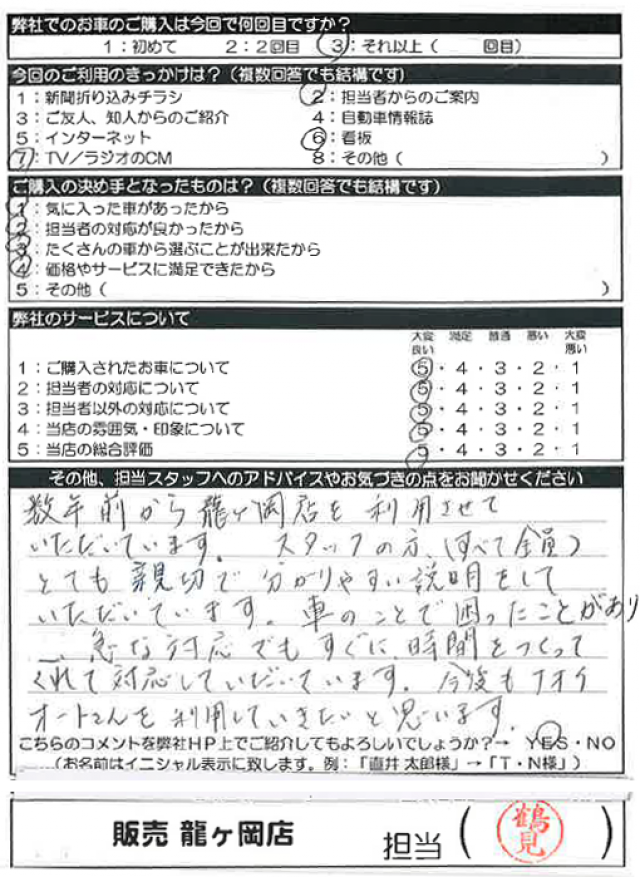 弊社でのお車のご購入は今回で何回目ですか？
1：初めて 2：2回目 3：それ以上（ 回目）
今回のご利用のきっかけは？（複数回答でも結構です）
1：新聞折り込みチラシ 2：担当者からのご案内
3：ご友人、知人からのご紹介 4：自動車情報誌
5：インターネット 6：看板
7：TV／ラジオのCM 8：その他（ ）
ご購入の決め手となったものは？（複数回答でも結構です）
1：気に入った車があったから
2：担当者の対応が良かったから
3：たくさんの車から選ぶことが出来たから
4：価格やサービスに満足できたから
5：その他（ ）
弊社のサービスについて
大変良い 満足 普通 悪い 大変悪い
1：ご購入されたお車について 5・4・3・2・1
2：担当者の対応について 5・4・3・2・1
3：担当者以外の対応について 5・4・3・2・1
4：当店の雰囲気・印象について 5・4・3・2・1
5：当店の総合評価 5・4・3・2・1
その他、担当スタッフへのアドバイスやお気づきの点をお聞かせください
数年前から龍ヶ岡店を利用させて
いただいています。 スタッフの方、(すべて全員)
とても親切で分かりやすい説明をして
いただいています。車のことで困ったことがあり
急な対応でもすぐに時間をつくって
くれて対応していだいています。今後もナオイ
オートさんを利用していきたいと思います。
こちらのコメントを弊社HP上でご紹介してもよろしいでしょうか？→ YES・NO
（お名前はイニシャル表示に致します。例：「直井 太郎様」→「T・N様」）
販売 龍ヶ岡店 担当（ 鶴見 ）